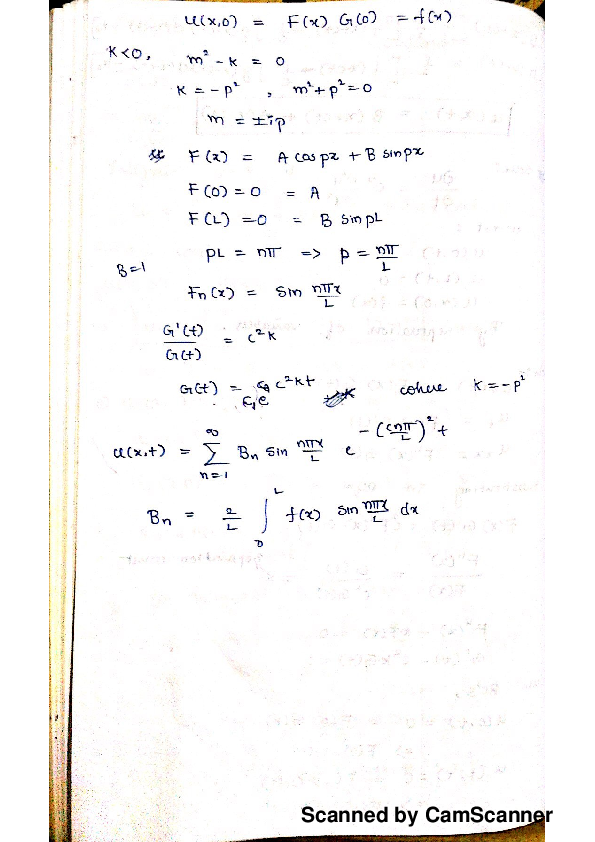 u(x,0) = F(x) G(0) = f(x)
K<0, m² - K = 0
K = -p² , m²+p²=0
m = ±ip
F(x) = A cos px + B sin px
F(0) = 0 = A
F(L) = 0 = B sin pL
pL = nπ => p = nπ/L
B=1
Fn(x) = sin nπx/L
G'(t)/G(t) = c²K
G(t) = C₁e^{c²Kt} where K = -p²
u(x,t) = ∑_{n=1}^{∞} Bn sin nπx/L e^{-(cnπ/L)² t}
Bn = 2/L ∫_0^L f(x) sin nπx/L dx
Scanned by CamScanner